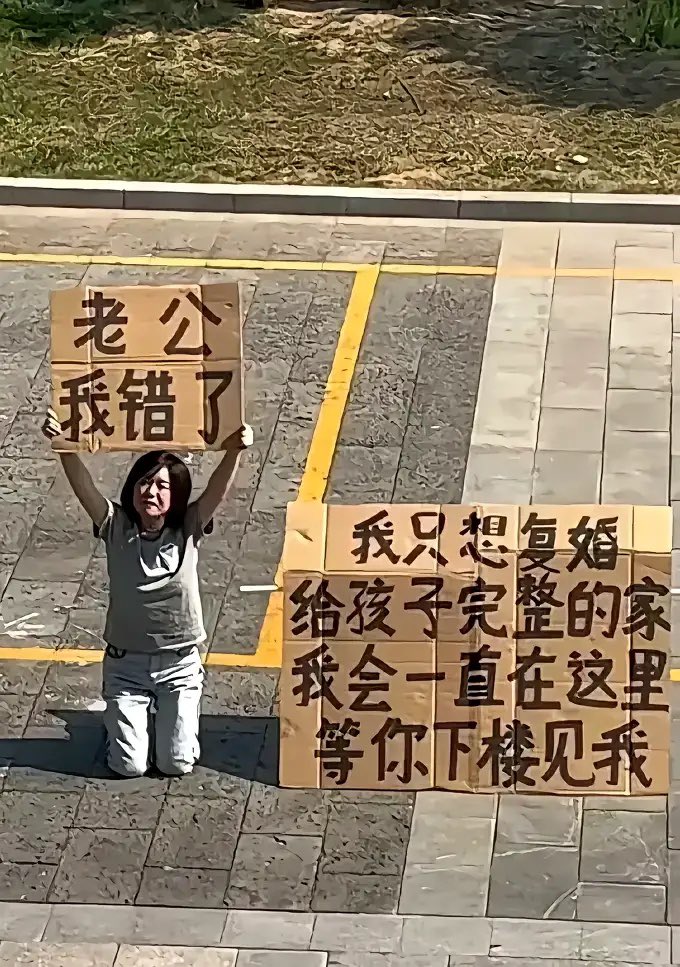 老公
我错了
我只想复婚
给孩子完整的家
我会一直在这里
等你下楼见我